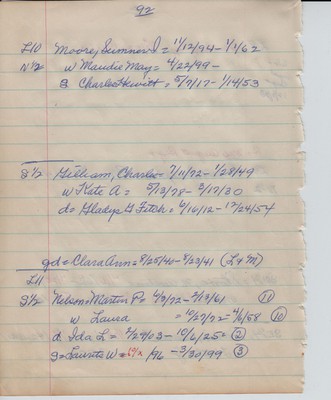 92
L10 Moore, Sumner I = 11/12/94 - 1/1/62
N 1/2 w Maudie May = 4/22/99 -
s Charles Hewitt = 5/7/17 - 1/14/53
S 1/2 Gilliam, Charles - 7/11/72 - 1/28/49
w Kate A = 5/13/78 - 2/17/30
d = Gladys G Fitch = 6/16/12 - 12/24/54
gd = Clara Ann = 8/25/40 - 8/23/41 (L & M)
L11
S 1/2 Nelson, Martin P = 6/3/72 - 2/13/61 (11)
w Laura = 10/27/72 - 4/6/58 (10)
d. Ida L = 2/29/03 - 10/6/25 = (2)
s = Laurits W = /96 - 3/30/99 (3)